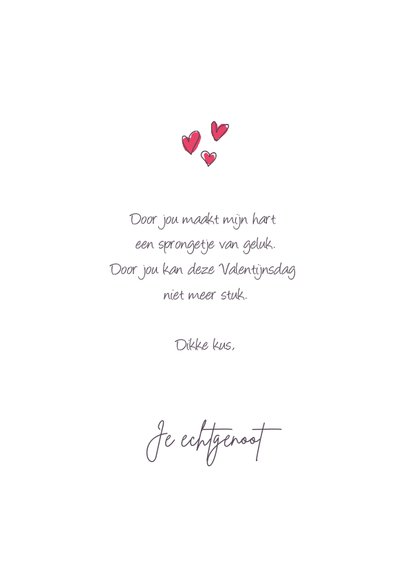 Door jou maakt mijn hart
een sprongetje van geluk.
Door jou kan deze Valentijnsdag
niet meer stuk.
Dikke kus,
Je echtgenoot